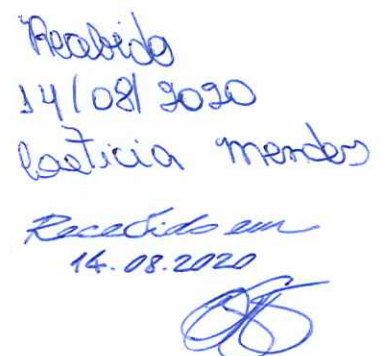 Recebido
14/08/2020
Laeticia Mendes
Recebido em
14.08.2020